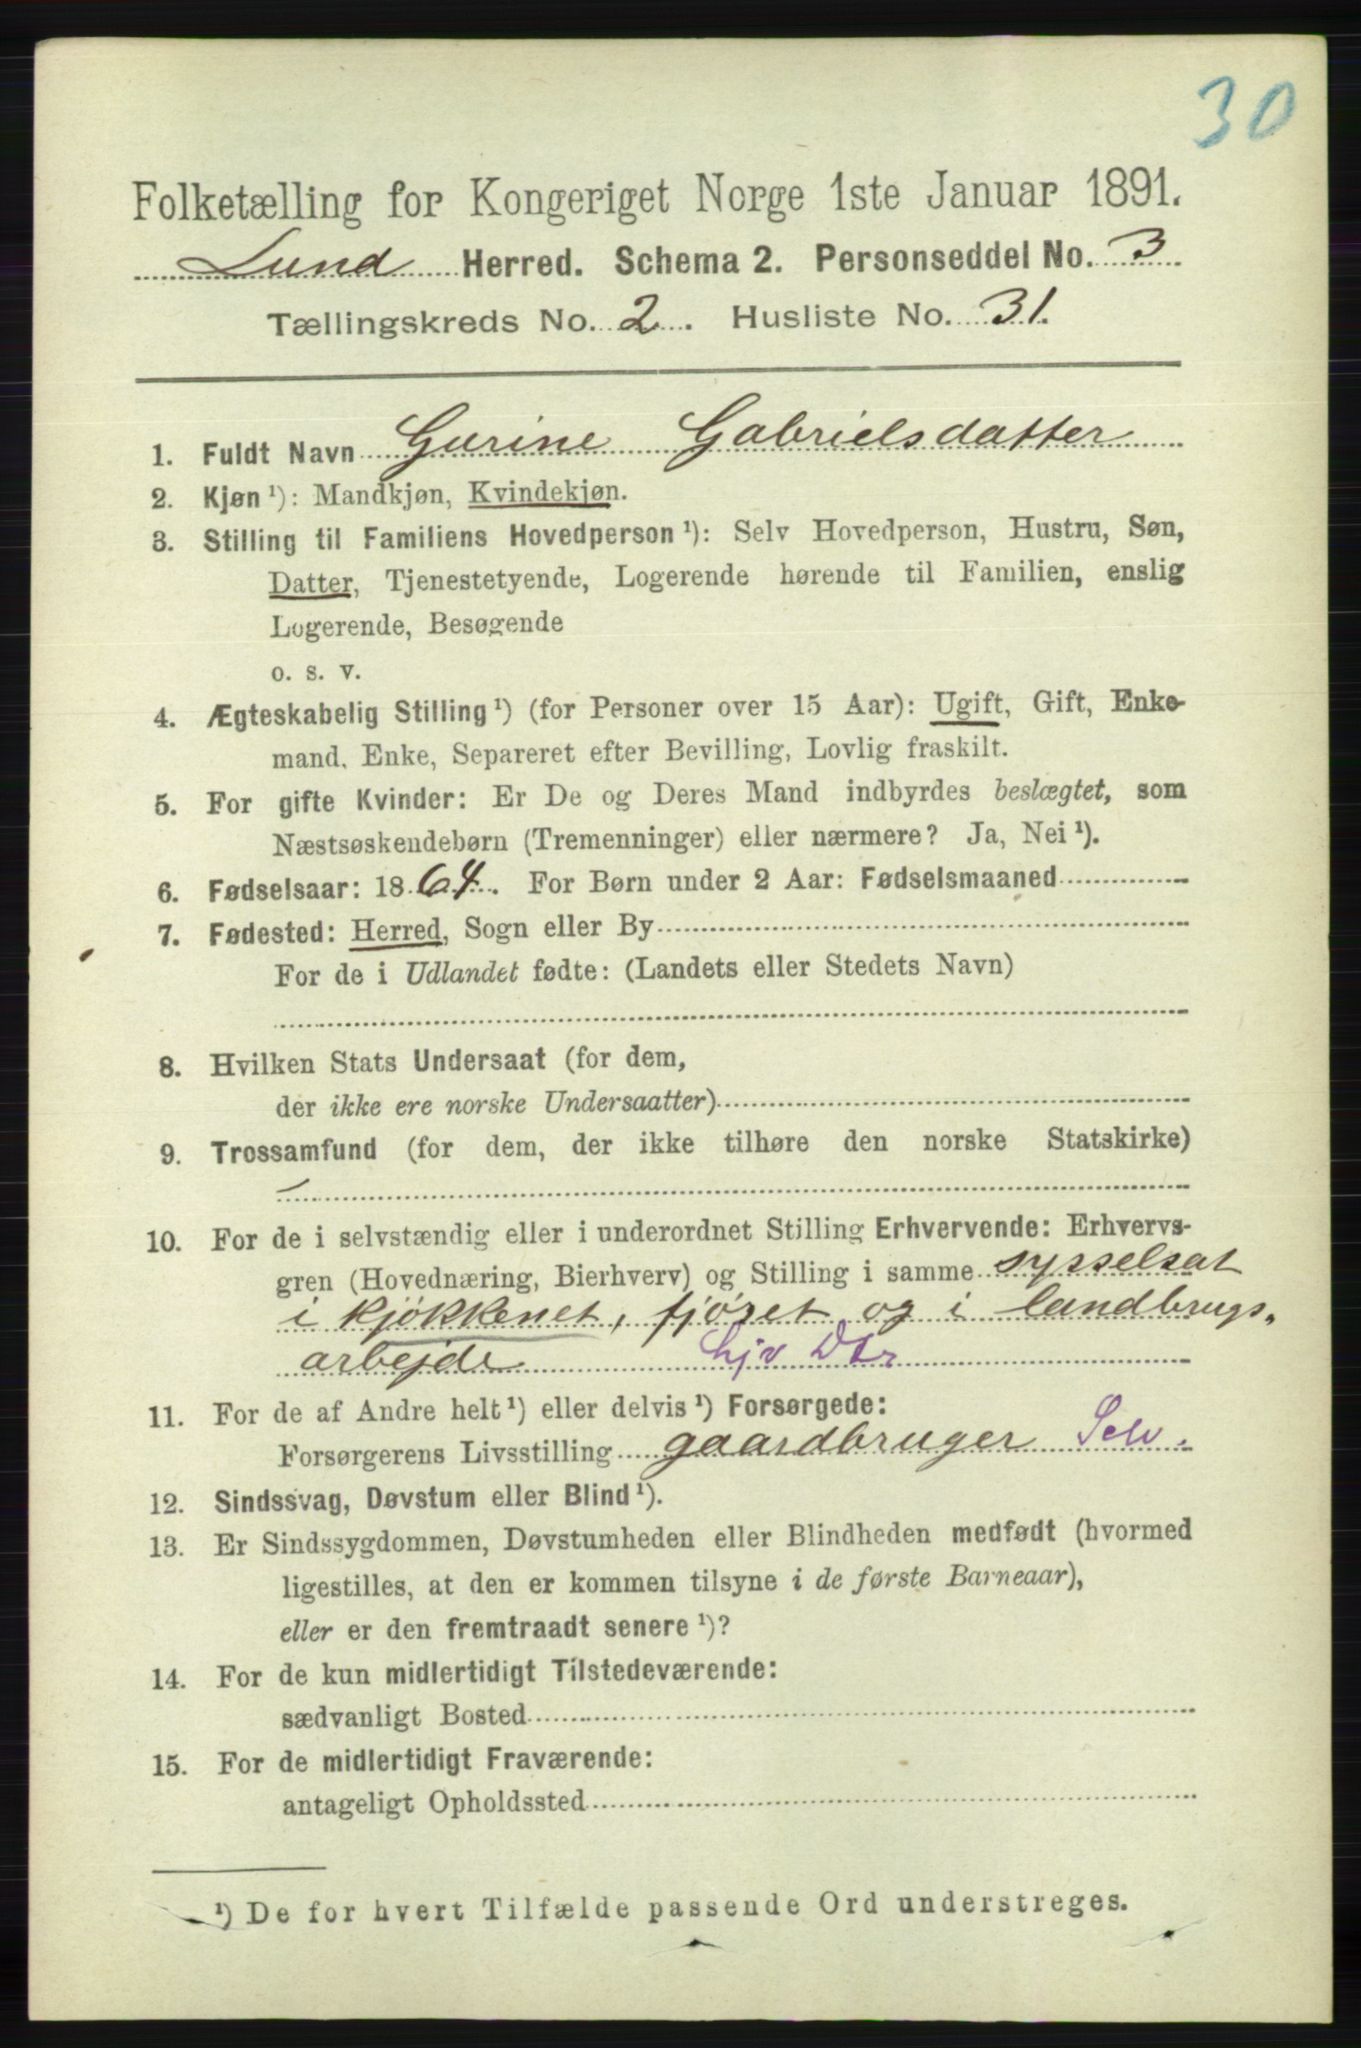 30
Folketælling for Kongeriget Norge 1ste Januar 1891.
Lund Herred. Schema 2. Personseddel No. 3
Tællingskreds No. 2. Husliste No. 31.
1. Fuldt Navn Gurine Gabrielsdatter
2. Kjøn ¹): Mandkjøn, Kvindekjøn.
3. Stilling til Familiens Hovedperson ¹): Selv Hovedperson, Hustru, Søn,
Datter, Tjenestetyende, Logerende hørende til Familien, enslig
Logerende, Besøgende
o. s. v.
4. Ægteskabelig Stilling ¹) (for Personer over 15 Aar): Ugift, Gift, Enke-
mand, Enke, Separeret efter Bevilling, Lovlig fraskilt.
5. For gifte Kvinder: Er De og Deres Mand indbyrdes beslægtet, som
Næstsøskendebørn (Tremenninger) eller nærmere? Ja, Nei ¹).
6. Fødselsaar: 1864. For Børn under 2 Aar: Fødselsmaaned
7. Fødested: Herred, Sogn eller By
For de i Udlandet fødte: (Landets eller Stedets Navn)
8. Hvilken Stats Undersaat (for dem,
der ikke ere norske Undersaatter)
9. Trossamfund (for dem, der ikke tilhøre den norske Statskirke)
10. For de i selvstændig eller i underordnet Stilling Erhvervende: Erhvervs-
gren (Hovednæring, Bierhverv) og Stilling i samme sysselsat
i kjøkkenet, fjøset og i landbrugs-
arbejde Hjv Dtr
11. For de af Andre helt ¹) eller delvis ¹) Forsørgede:
Forsørgerens Livsstilling gaardbruger Selv.
12. Sindssvag, Døvstum eller Blind ¹).
13. Er Sindssygdommen, Døvstumheden eller Blindheden medfødt (hvormed
ligestilles, at den er kommen tilsyne i de første Barneaar),
eller er den fremtraadt senere ¹)?
14. For de kun midlertidigt Tilstedeværende:
sædvanligt Bosted
15. For de midlertidigt Fraværende:
antageligt Opholdssted
¹) De for hvert Tilfælde passende Ord understreges.